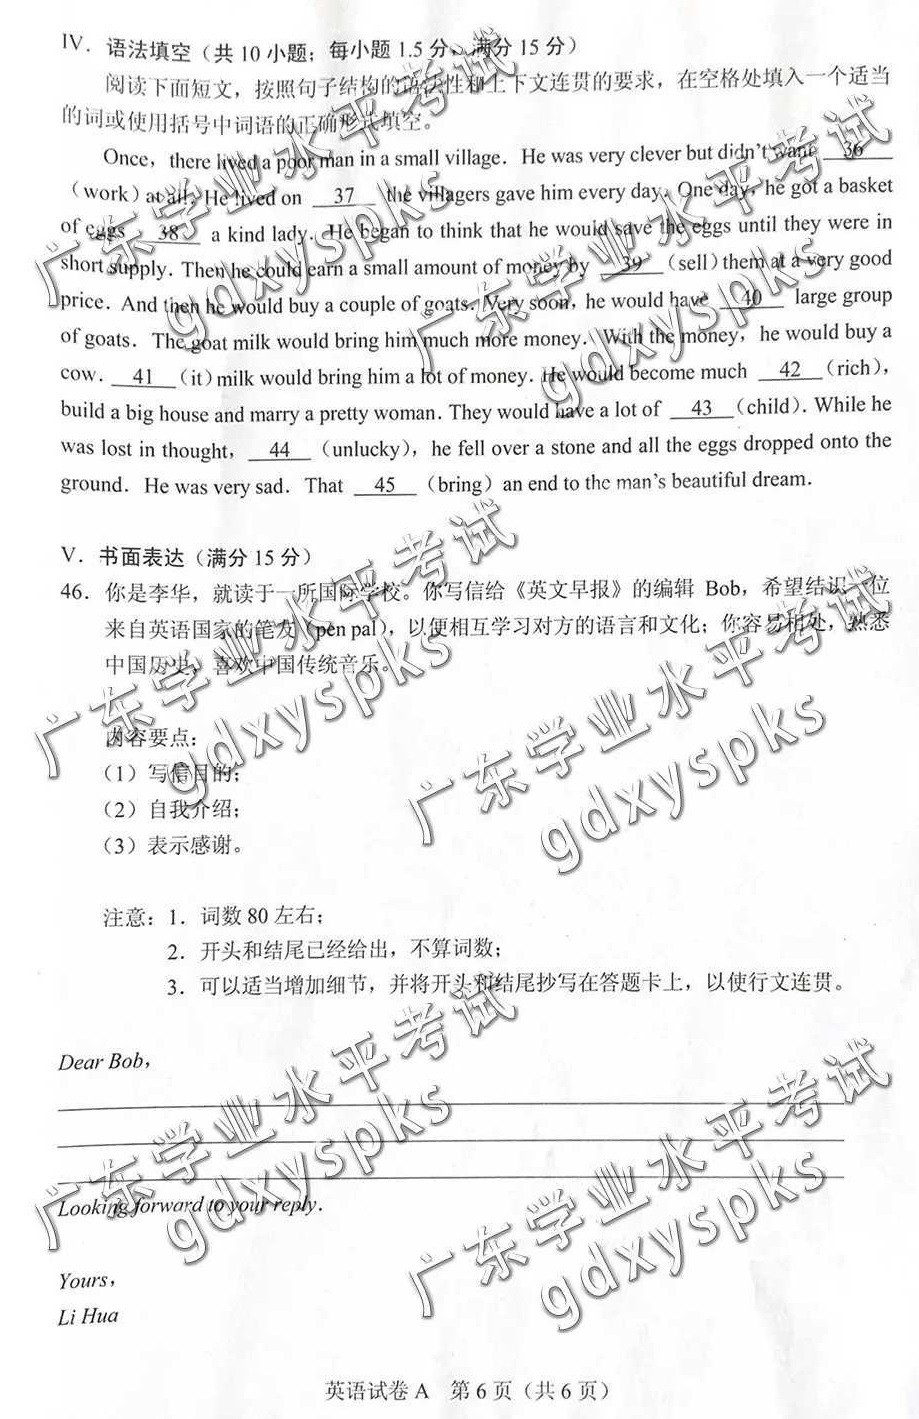 IV. 语法填空（共 10 小题；每小题 1.5 分，满分 15 分）
阅读下面短文，按照句子结构的语法性和上下文连贯的要求，在空格处填入一个适当
的词或使用括号中词语的正确形式填空。
Once, there lived a poor man in a small village. He was very clever but didn't want 36
(work) at all. He lived on 37 the villagers gave him every day. One day, he got a basket
of eggs 38 a kind lady. He began to think that he would save the eggs until they were in
short supply. Then he could earn a small amount of money by 39 (sell) them at a very good
price. And then he would buy a couple of goats. Very soon, he would have 40 large group
of goats. The goat milk would bring him much more money. With the money, he would buy a
cow. 41 (it) milk would bring him a lot of money. He would become much 42 (rich),
build a big house and marry a pretty woman. They would have a lot of 43 (child). While he
was lost in thought, 44 (unlucky), he fell over a stone and all the eggs dropped onto the
ground. He was very sad. That 45 (bring) an end to the man's beautiful dream.
V. 书面表达（满分 15 分）
46. 你是李华，就读于一所国际学校。你写信给《英文早报》的编辑 Bob，希望结识一位
来自英语国家的笔友（pen pal），以便相互学习对方的语言和文化；你容易相处，熟悉
中国历史，喜欢中国传统音乐。
内容要点：
（1）写信目的；
（2）自我介绍；
（3）表示感谢。
注意：1. 词数 80 左右；
2. 开头和结尾已经给出，不算词数；
3. 可以适当增加细节，并将开头和结尾抄写在答题卡上，以使行文连贯。
Dear Bob,
Looking forward to your reply.
Yours,
Li Hua
英语试卷 A 第 6 页（共 6 页）
广东学业水平考试
gdxyspks
广东学业水平考试
gdxyspks
广东学业水平考试
gdxyspks
广东学业水平考试
gdxyspks
广东学业水平考试
gdxyspks
广东学业水平考试
gdxyspks